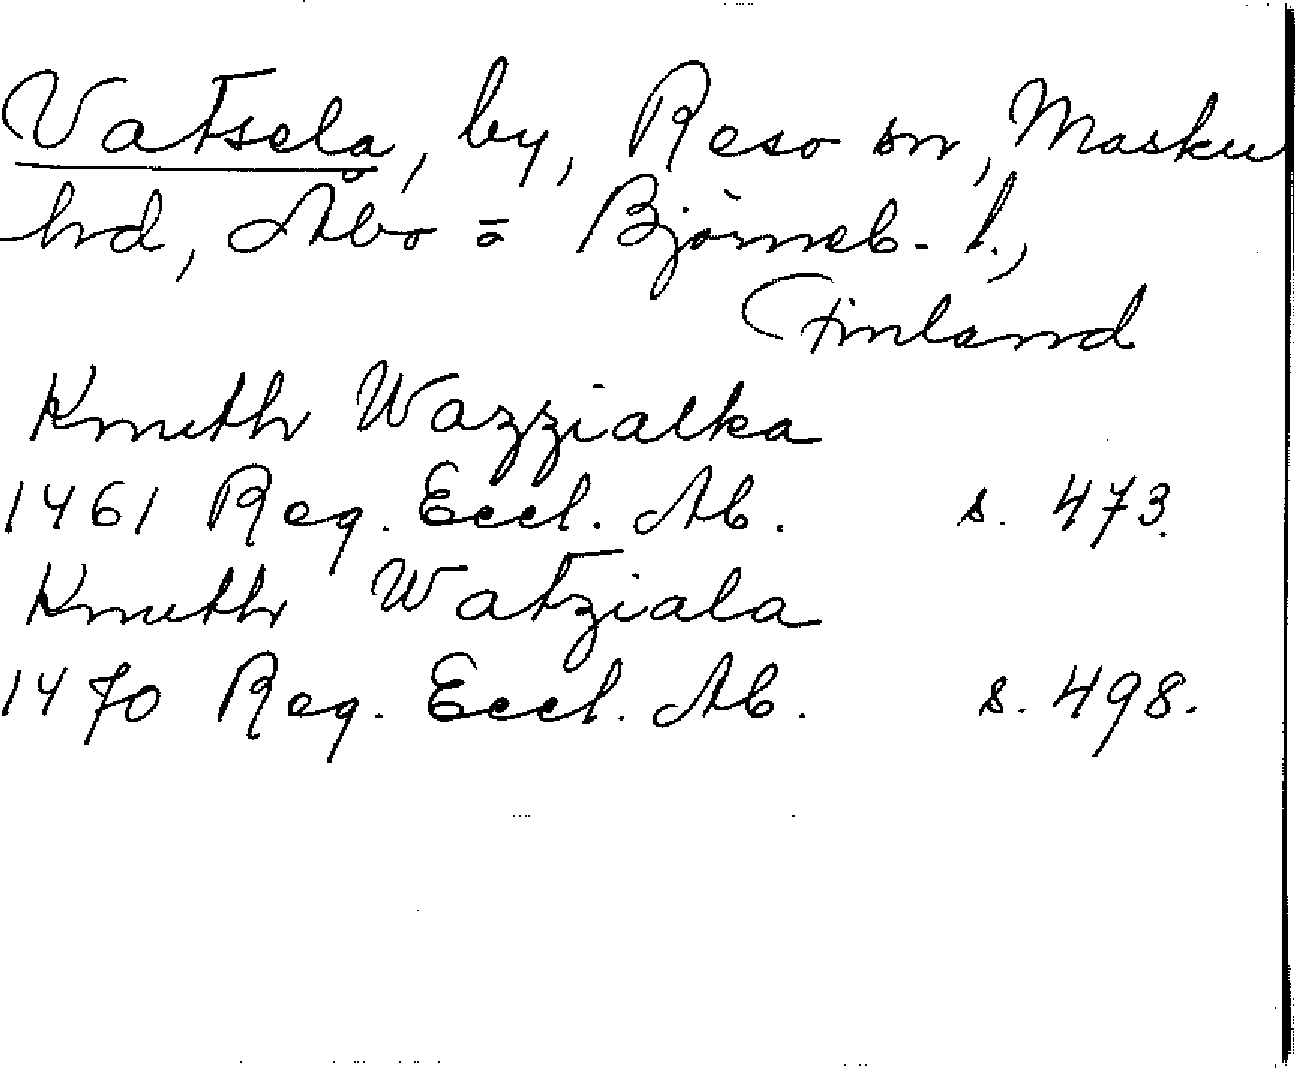 Vatsela, by, Reso sn, Masku
hd, Åbo = Björneb. l.,
Finland
Knuth Wazzialka
1461 Reg. Eccl. Ab. s. 473.
Knuth Watziala
1470 Reg. Eccl. Ab. s. 498.